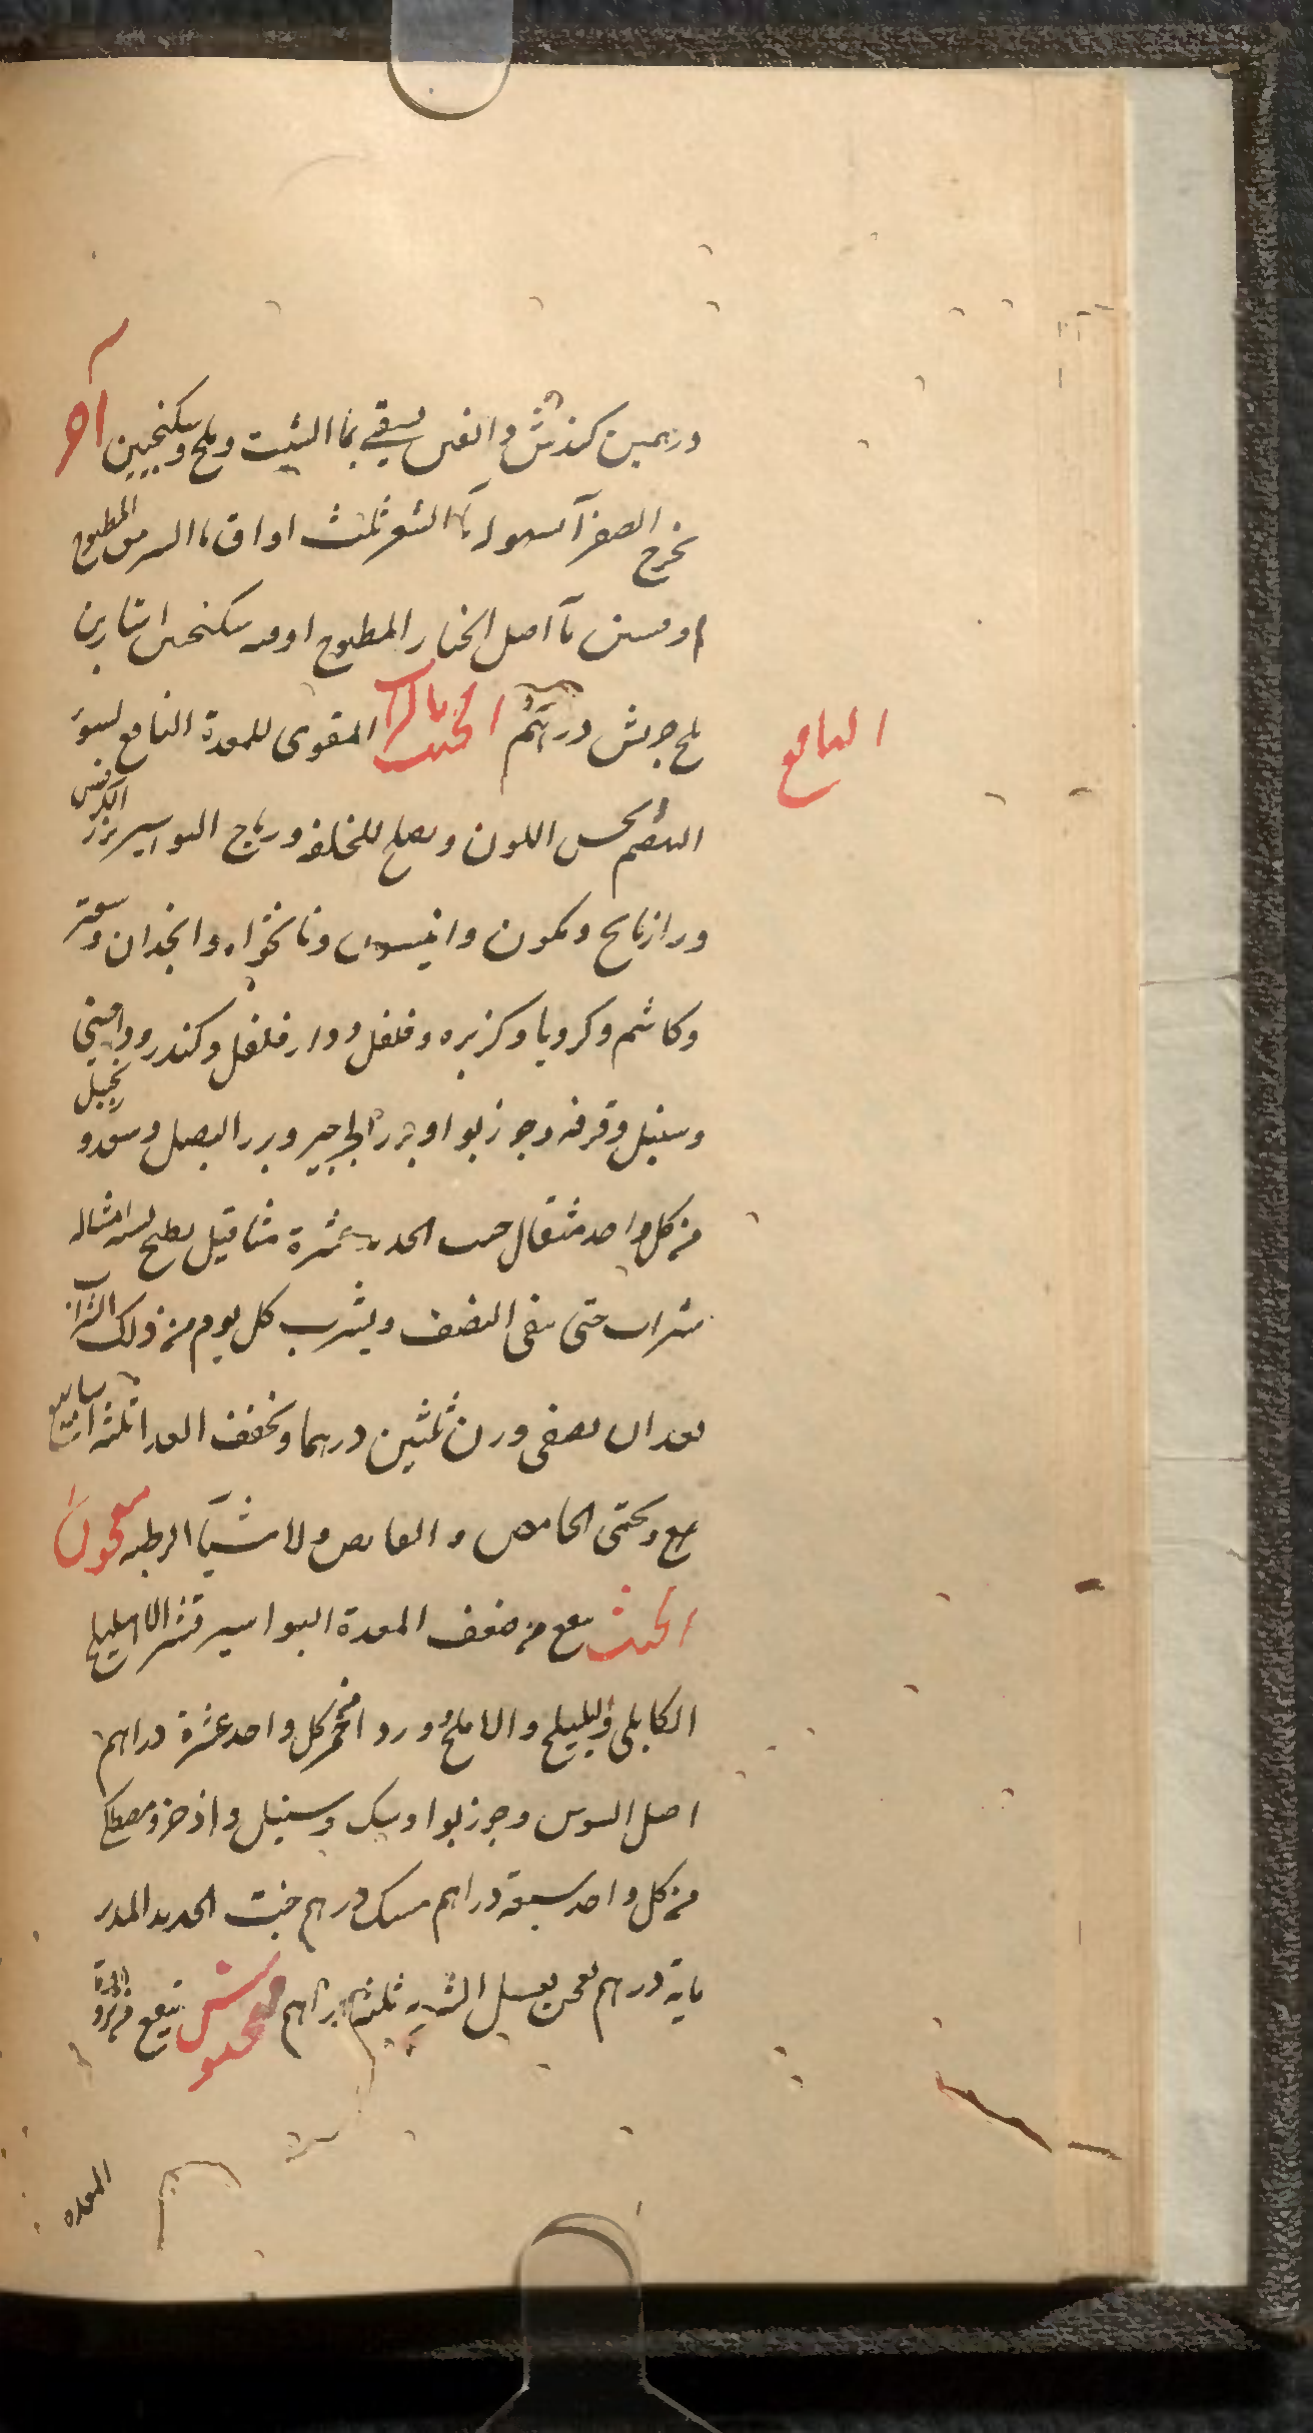 درهمين كندش دانقين يسقى بما الشبت وملح وسكنجبين آخر
يخرج الصفرآ بسهولة مآ الشعير ثلث اواق مآ السرمق المطبوخ
اوقيتين مآ اصل الخيار المطبوخ اوقيه سكنجبين استارين
ملح جريش درهم الخبث المقوى للمعدة النافع لسوء
الهضم يحسن اللون ويصلح للخلفه ورياح البواسير بزر الكرفس
ورازيانج وكمون وانيسون ونانخواه وانجدان وسعتر
وكاشم وكرويا وكزبره وفلفل ودار فلفل وكندر ودارصينى
وسنبل وقرفه وجوزبوا وبزر الجرجير وبزر البصل وسعد وزنجبيل
من كل واحد مثقال خبث الحديد عشرة مثاقيل يطبخ بستة امثاله
شراب حتى يبقى النصف ويشرب كل يوم من ذلك الشراب
بعد ان يصفى وزن ثلثين درهما ويخفف الغدا ثلثة اسابيع
ويحتمى الحامض و القابض ولا شيآ الرطبه معجون
الخبث ينفع من ضعف المعدة البواسير قشر الاهليلج
الكابلى والبليلج والاملج وورد احمر من كل واحد عشرة دراهم
اصل السوس وجوزبوا وسك وسنبل واذخر ومصطكى
من كل واحد سبعة دراهم مسك درهم خبث الحديد المدبر
مايه درهم يعجن بعسل الشربه ثلثة دراهم معجون ينفع من برد
المعده
النافع